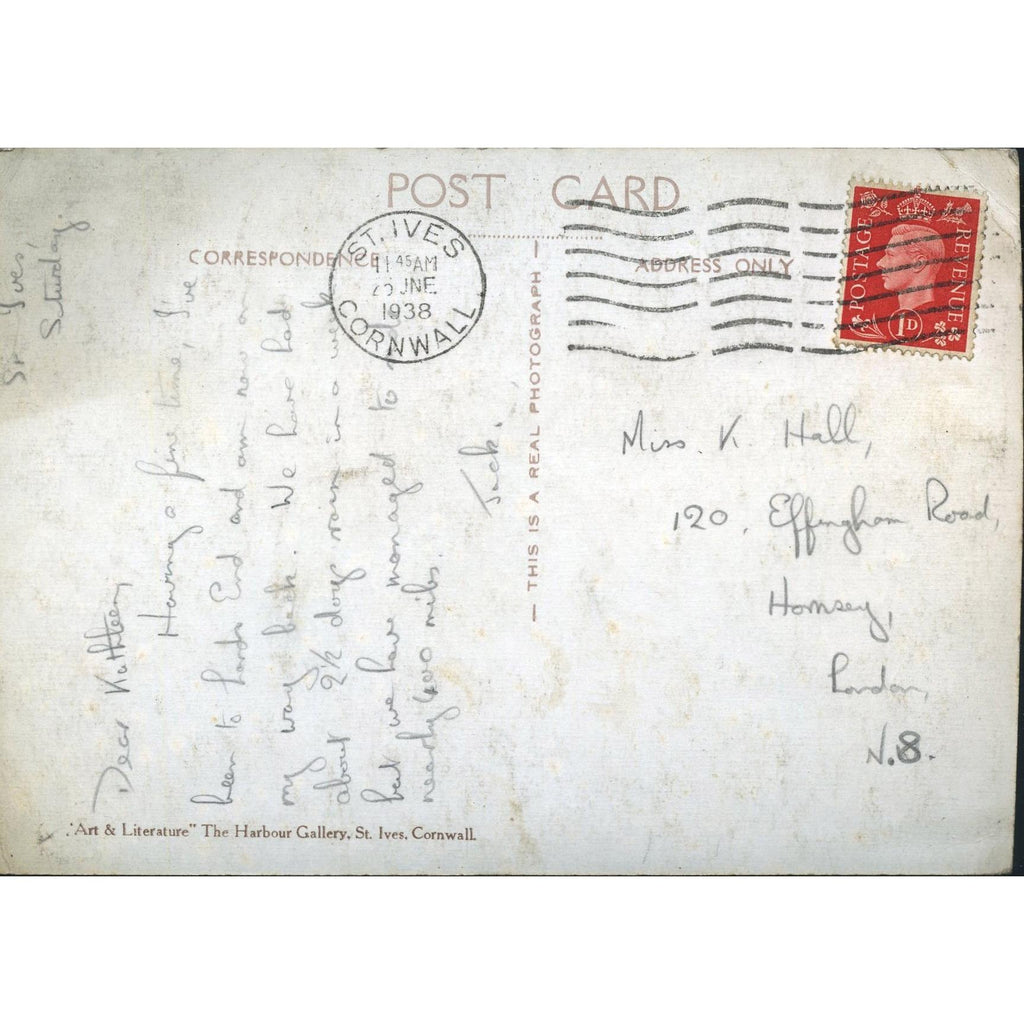 POST CARD
CORRESPONDENCE
ADDRESS ONLY
ST. IVES
11 45 AM
JNE
1938
CORNWALL
POSTAGE
REVENUE
1D
— THIS IS A REAL PHOTOGRAPH —
St Ives
Saturday.
Dear Kathleen,
Having a fine time, I've
been to Lands End and am now on
my way back. We have had
about 2½ days rain in a week
but we have managed to
nearly 400 miles.
Jack.
Miss K. Hall,
120, Effingham Road,
Hornsey,
London,
N.8.
"Art & Literature" The Harbour Gallery, St. Ives, Cornwall.